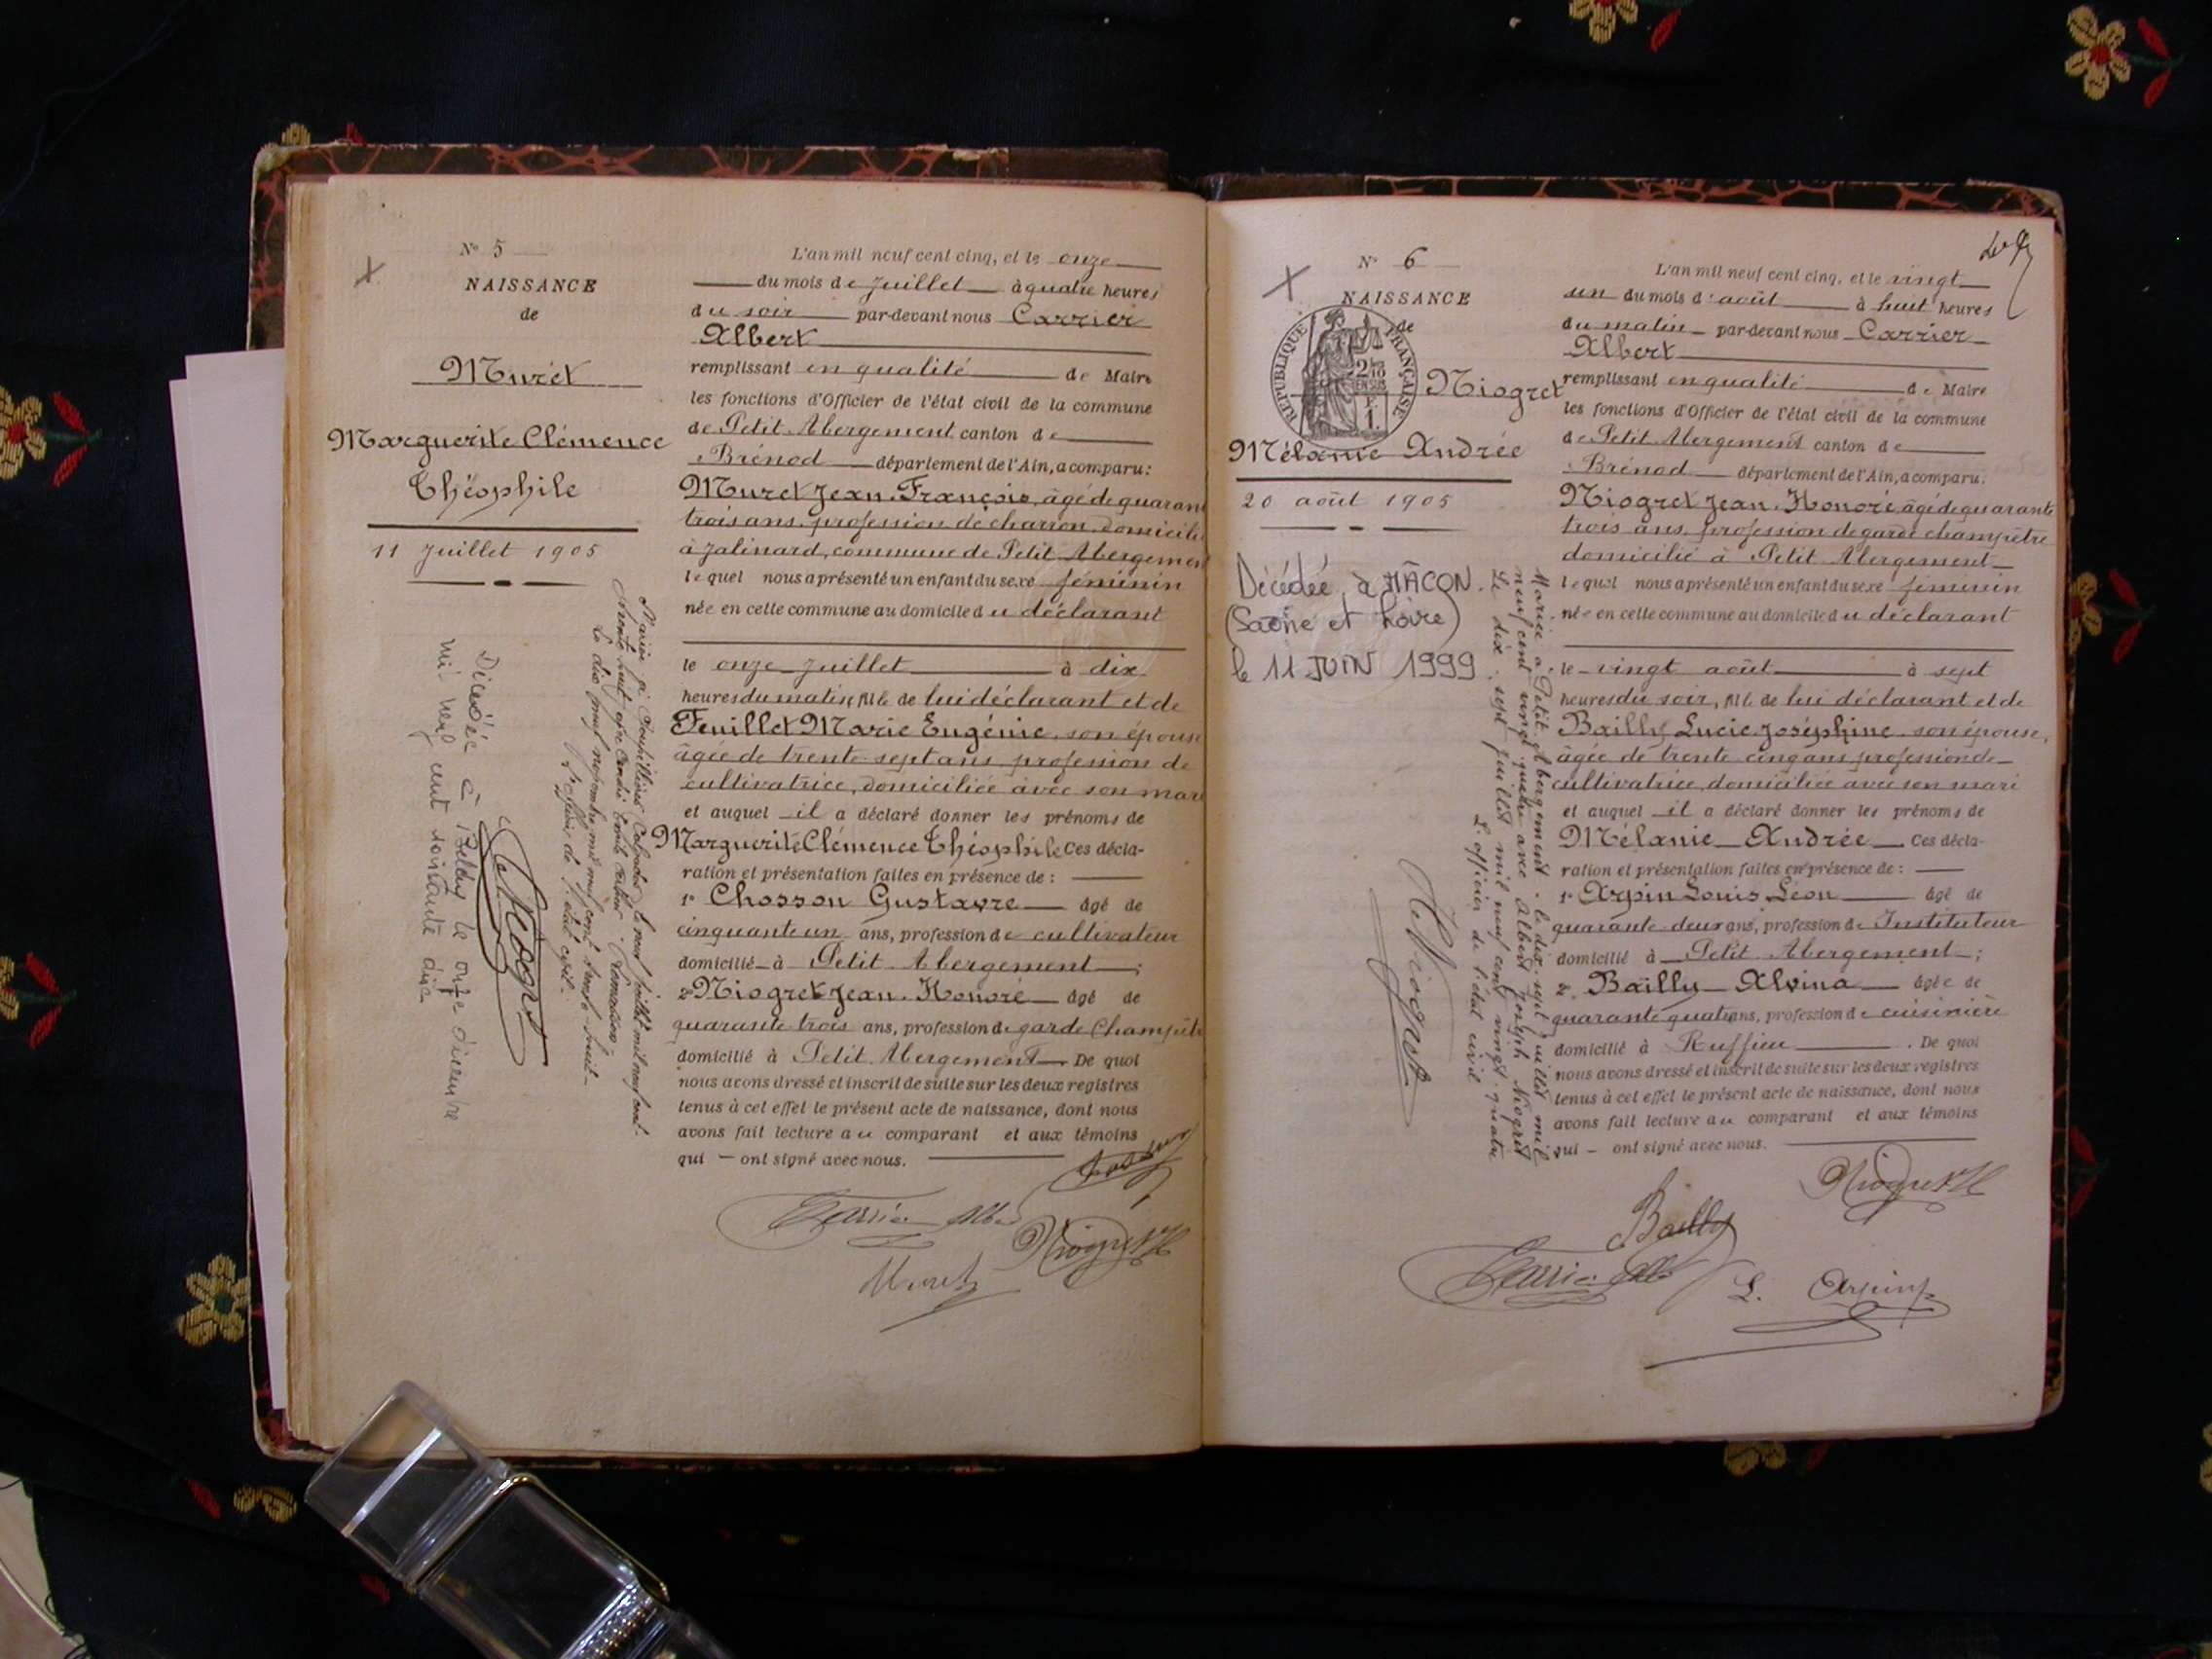 N° 5
NAISSANCE
de
Muret
Marguerite Clémence
Théophile
11 Juillet 1905
Décédée à Belley le onze décembre
mil neuf cent soixante dix
L'an mil neuf cent cinq, et le onze
du mois de Juillet à quatre heures
du soir par-devant nous Carrier
Albert
remplissant en qualité de Maire
les fonctions d'Officier de l'état civil de la commune
de Petit Abergement canton de
Brénod département de l'Ain, a comparu:
Muret Jean François, âgé de quarant
trois ans, profession de charron, domicili
à Jalinard, commune de Petit Abergemen
lequel nous a présenté un enfant du sexe féminin
née en cette commune au domicile du déclarant
le onze Juillet à dix
heures du matin, fille de lui déclarant et de
Feuillet Marie Eugénie, son épouse
âgée de trente sept ans profession de
cultivatrice, domiciliée avec son mari
et auquel il a déclaré donner les prénoms de
Marguerite Clémence Théophile Ces décla-
ration et présentation faites en présence de :
1° Chosson Gustave âgé de
cinquante un ans, profession de cultivateur
domicilié à Petit Abergement ;
2° Niogret Jean Honoré âgé de
quarante trois ans, profession de garde Champêt
domicilié à Petit Abergement De quoi
nous avons dressé et inscrit de suite sur les deux registres
tenus à cet effet le présent acte de naissance, dont nous
avons fait lecture au comparant et aux témoins
qui ont signé avec nous.
Carrier Alb
Niogret H
Muret
N° 6
NAISSANCE
de
RÉPUBLIQUE FRANÇAISE
Niogret
Mélanie Andrée
20 août 1905
Décédée à MÂCON
(Saône et Loire)
le 11 JUIN 1999
Mariée à Petit Abergement le dix-sept juillet mil
neuf cent vingt-quatre avec Albert Joseph Niogret
Le dix-sept juillet mil neuf cent vingt-quatre
L'officier de l'état civil
H Niogret
L'an mil neuf cent cinq, et le vingt
un du mois d'août à huit heures
du matin par-devant nous Carrier
Albert
remplissant en qualité de Maire
les fonctions d'Officier de l'état civil de la commune
de Petit Abergement canton de
Brénod département de l'Ain, a comparu:
Niogret Jean Honoré âgé de quarante
trois ans, profession de garde champêtre
domicilié à Petit Abergement
lequel nous a présenté un enfant du sexe féminin
née en cette commune au domicile du déclarant
le vingt août à sept
heures du soir, fille de lui déclarant et de
Bailly Lucie Joséphine son épouse,
âgée de trente cinq ans profession de
cultivatrice, domiciliée avec son mari
et auquel il a déclaré donner les prénoms de
Mélanie Andrée Ces décla-
ration et présentation faites en présence de :
1° Arpin Louis Léon âgé de
quarante deux ans, profession de Instituteur
domicilié à Petit Abergement ;
2° Bailly Alvina âgée de
quarante quatre ans, profession de cuisinière
domicilié à Ruffieu . De quoi
nous avons dressé et inscrit de suite sur les deux registres
tenus à cet effet le présent acte de naissance, dont nous
avons fait lecture au comparant et aux témoins
qui ont signé avec nous.
Niogret H
Bailly
Carrier Alb
L. Arpin